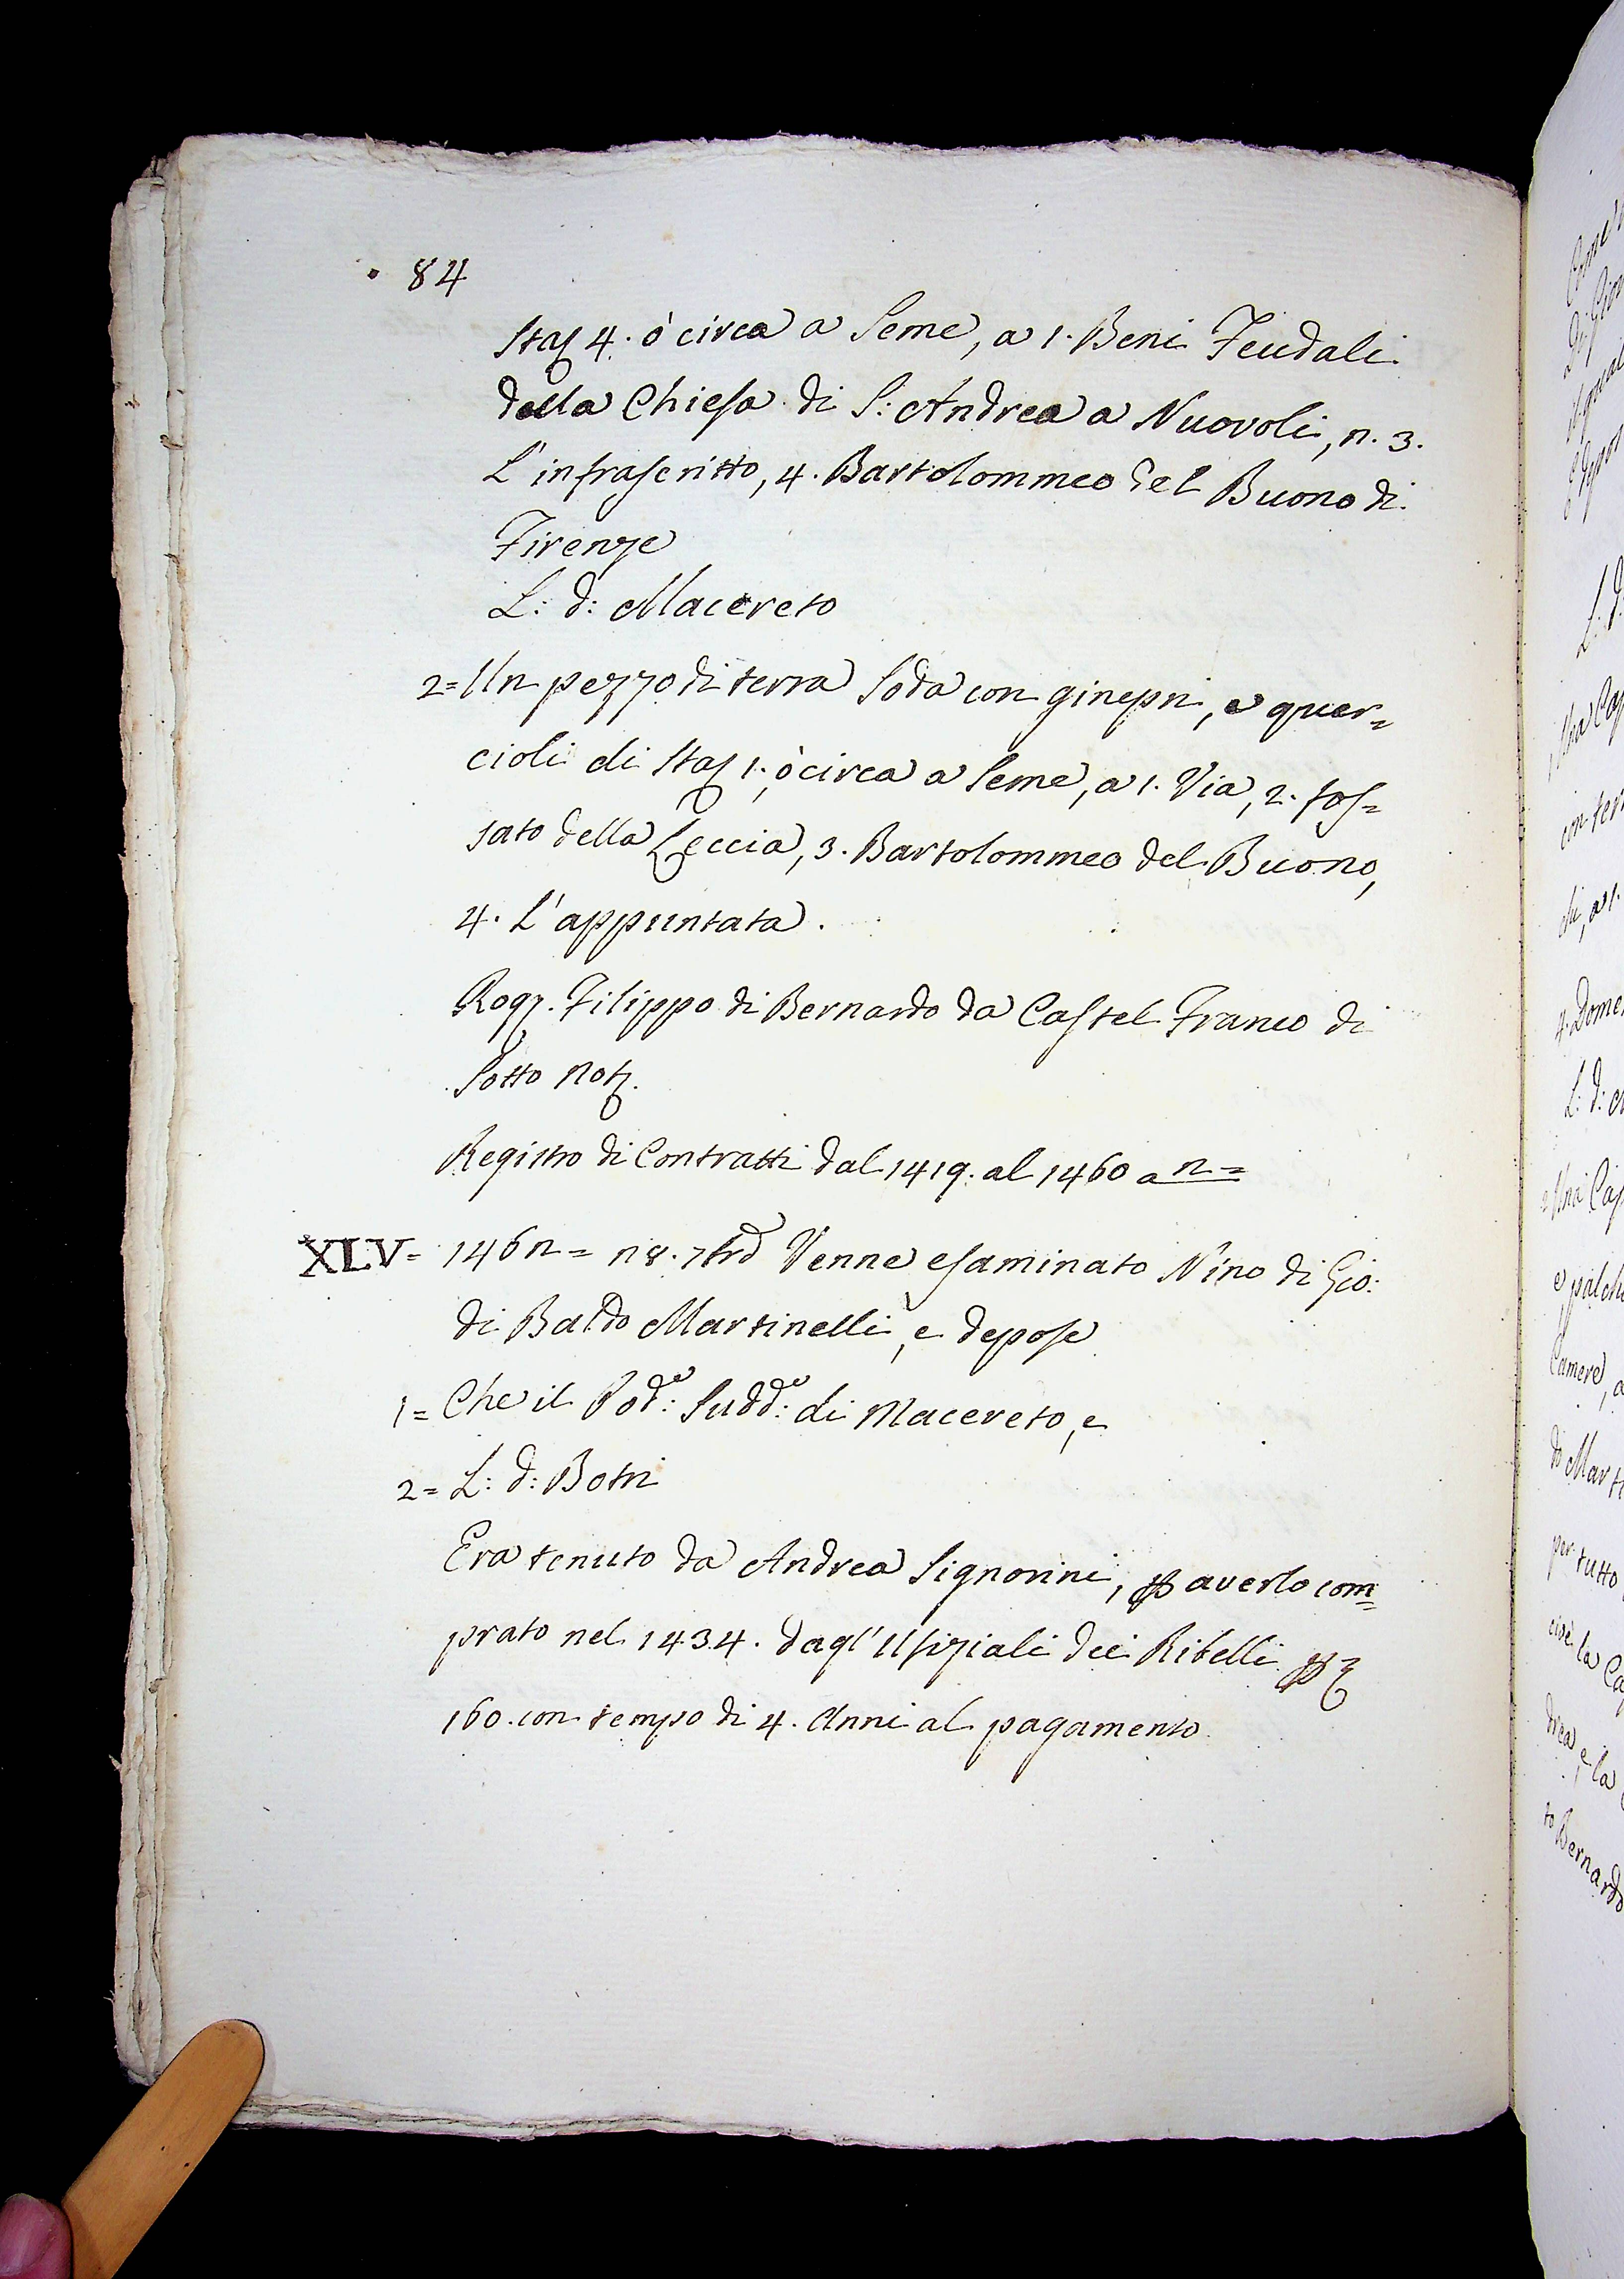 84
Staj 4. ò circa a Seme, a 1. Beni Feudali
della Chiesa di S: Andrea a Nuovoli, n. 3.
L'infrascritto, 4. Bartolommeo del Buono di
Firenze
L: d: Macereto
2= Un pezzo di terra Soda con ginepri, e quer=
cioli di Staj 1. ò circa a Seme, a 1. Via, 2. fos=
sato della Leccia, 3. Bartolommeo del Buono,
4. L'appuntata.
Rog. Filippo di Bernardo da Castel Franco di
Sotto Not.
Registro di Contratti dal 1419. al 1460 a n=
XLV= 146n= n8. 7bre Venne esaminato Nino di Gio:
di Baldo Martinelli, e depose
1= Che il Pode: Sudde: di Macereto, e
2= L: d: Botri
Era tenuto da Andrea Signorini, p averlo com=
prato nel 1434. dagl'Ufiziali dei Ribelli p
160. con tempo di 4. Anni al pagamento